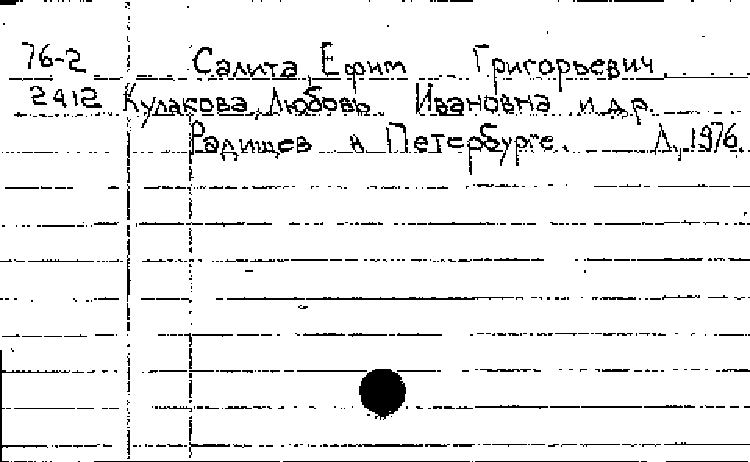 76-2 Салита, Ефим Григорьевич
2412 Кулакова, Любовь Ивановна и др.
Радищев в Петербурге. Л., 1976.